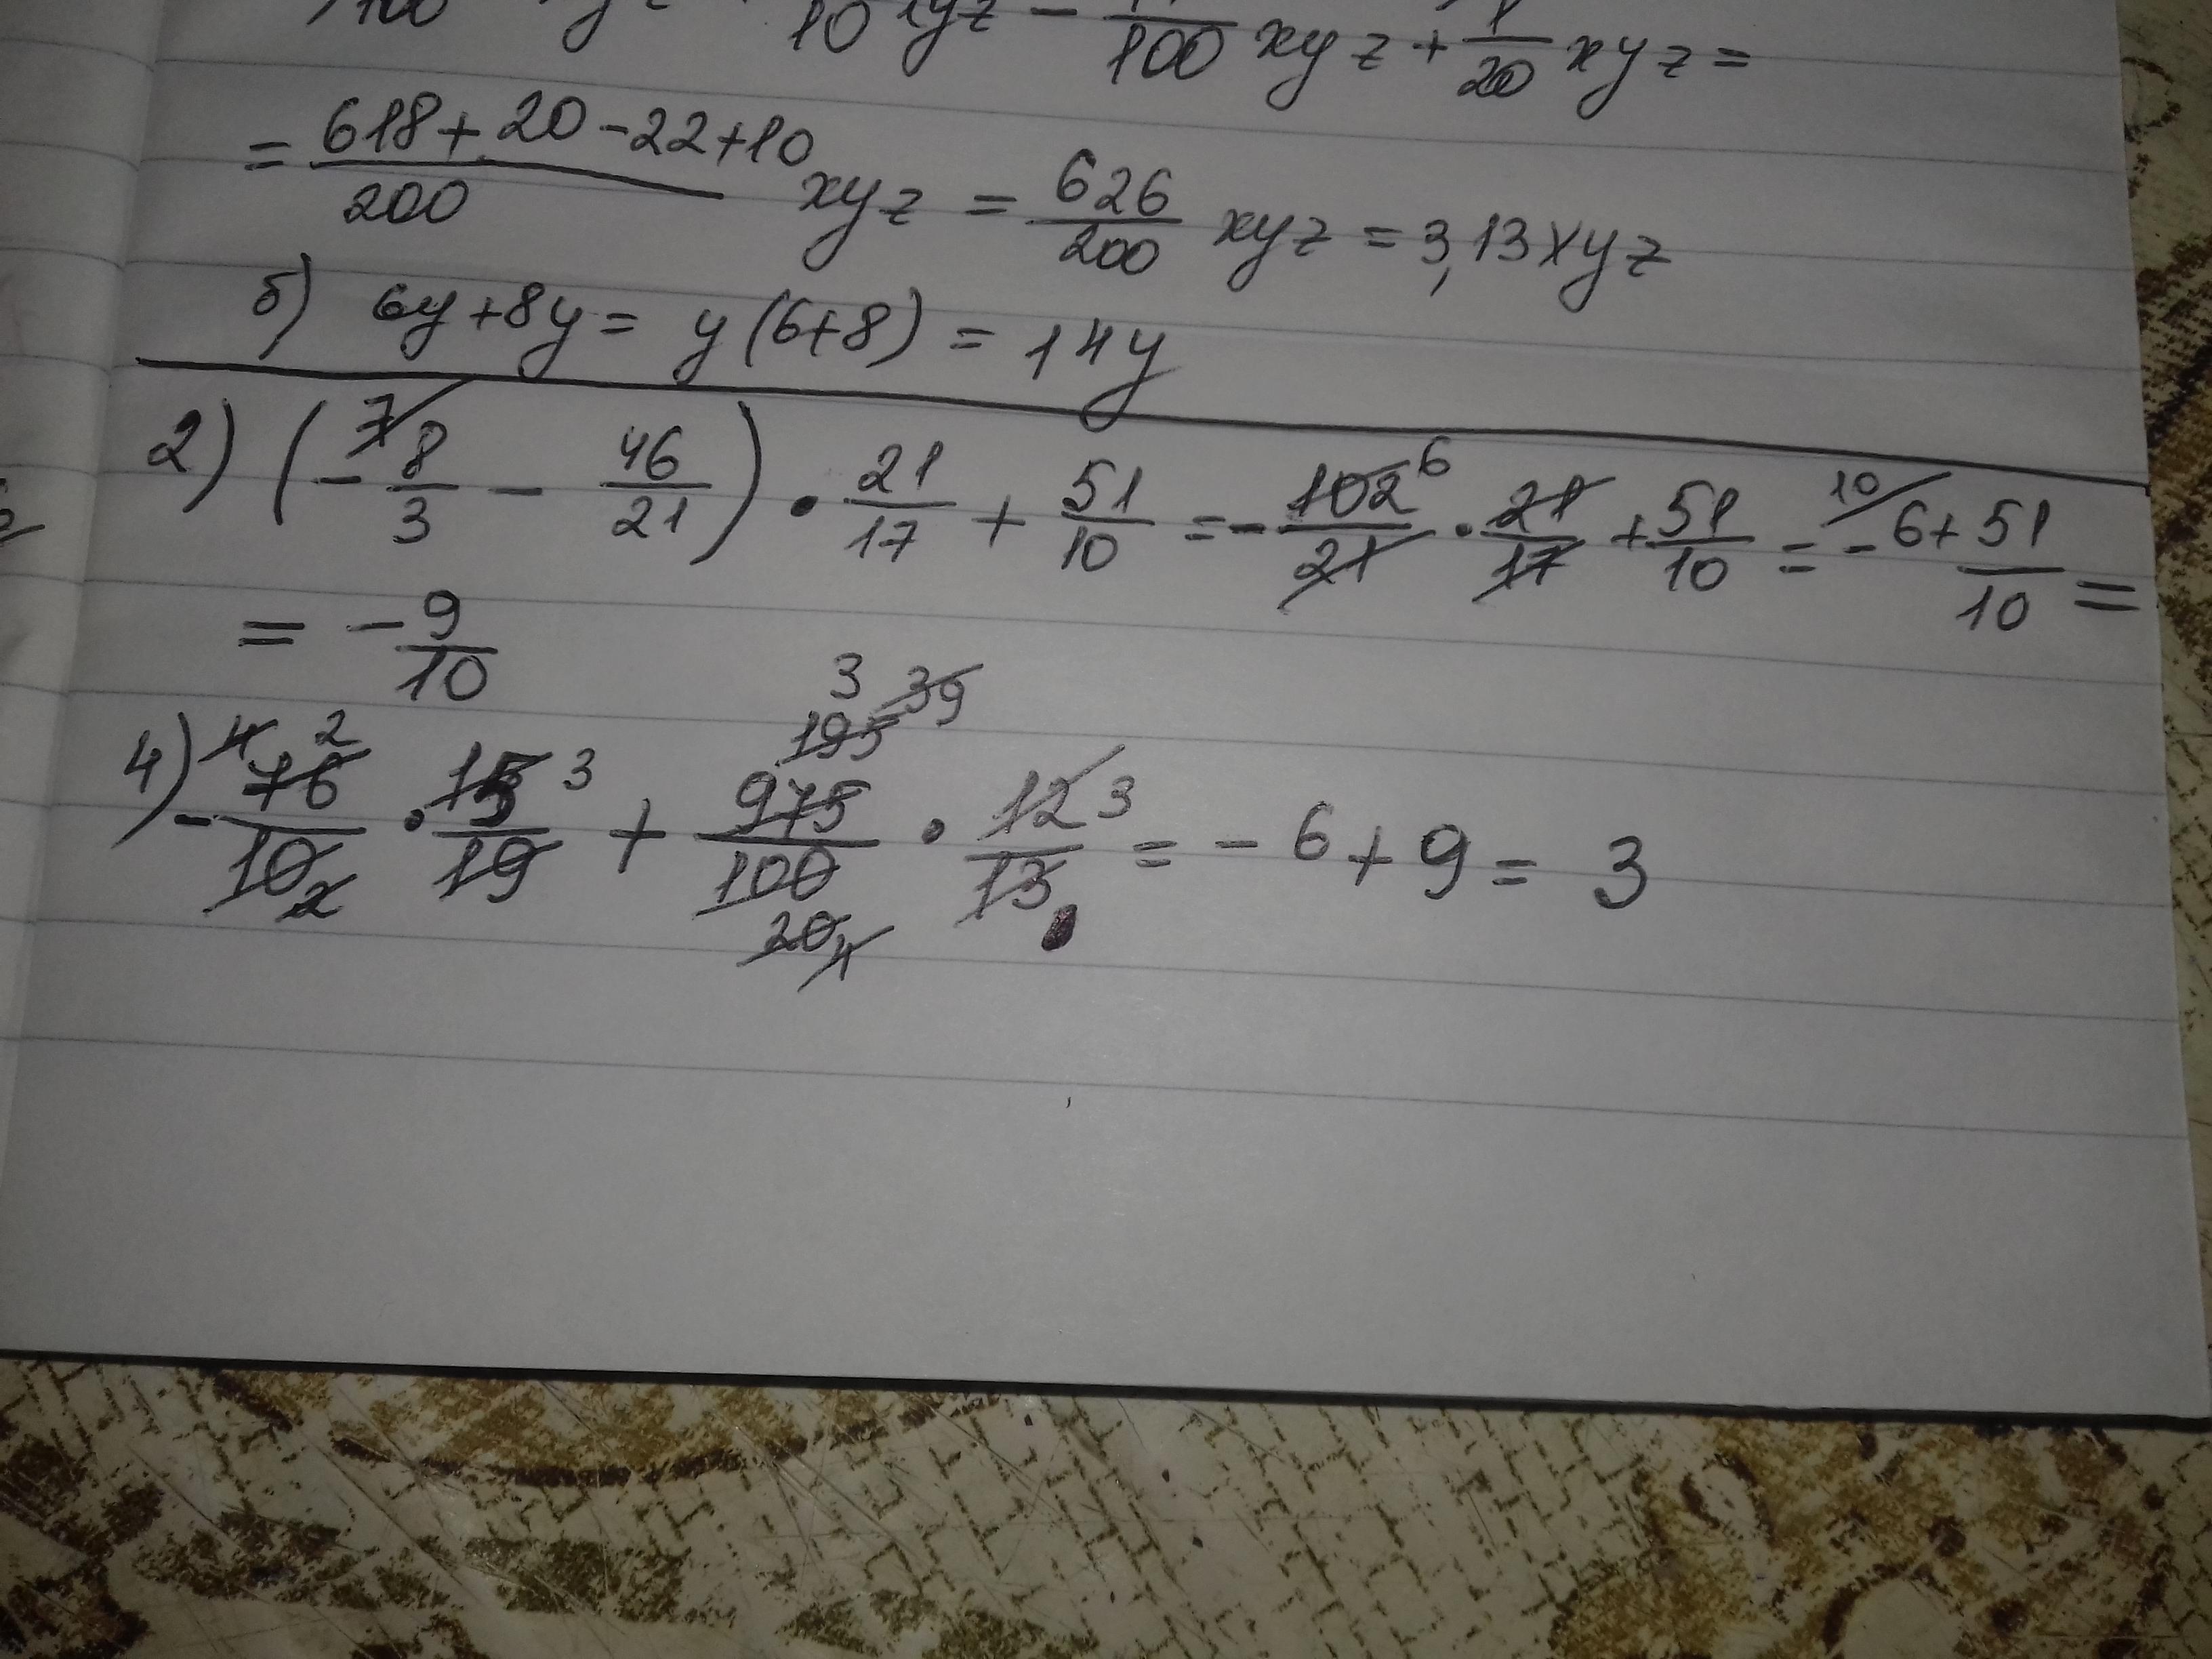 100 yz 10 xyz - 100 xyz + 1/20 xyz =
= (618 + 20 - 22 + 10)/200 xyz = 626/200 xyz = 3,13xyz
б) 6y + 8y = y(6+8) = 14y
2) (- 7/ 8/3 - 46/21) · 21/17 + 51/10 = - 102 6/21 · 21/17 + 51/10 = 10/ - 6 + 51/10 =
= - 9/10
3 39
4) - 4 2 76/10 2 · 15 3/19 + 195 975/100 20 4 · 12 3/13 = - 6 + 9 = 3